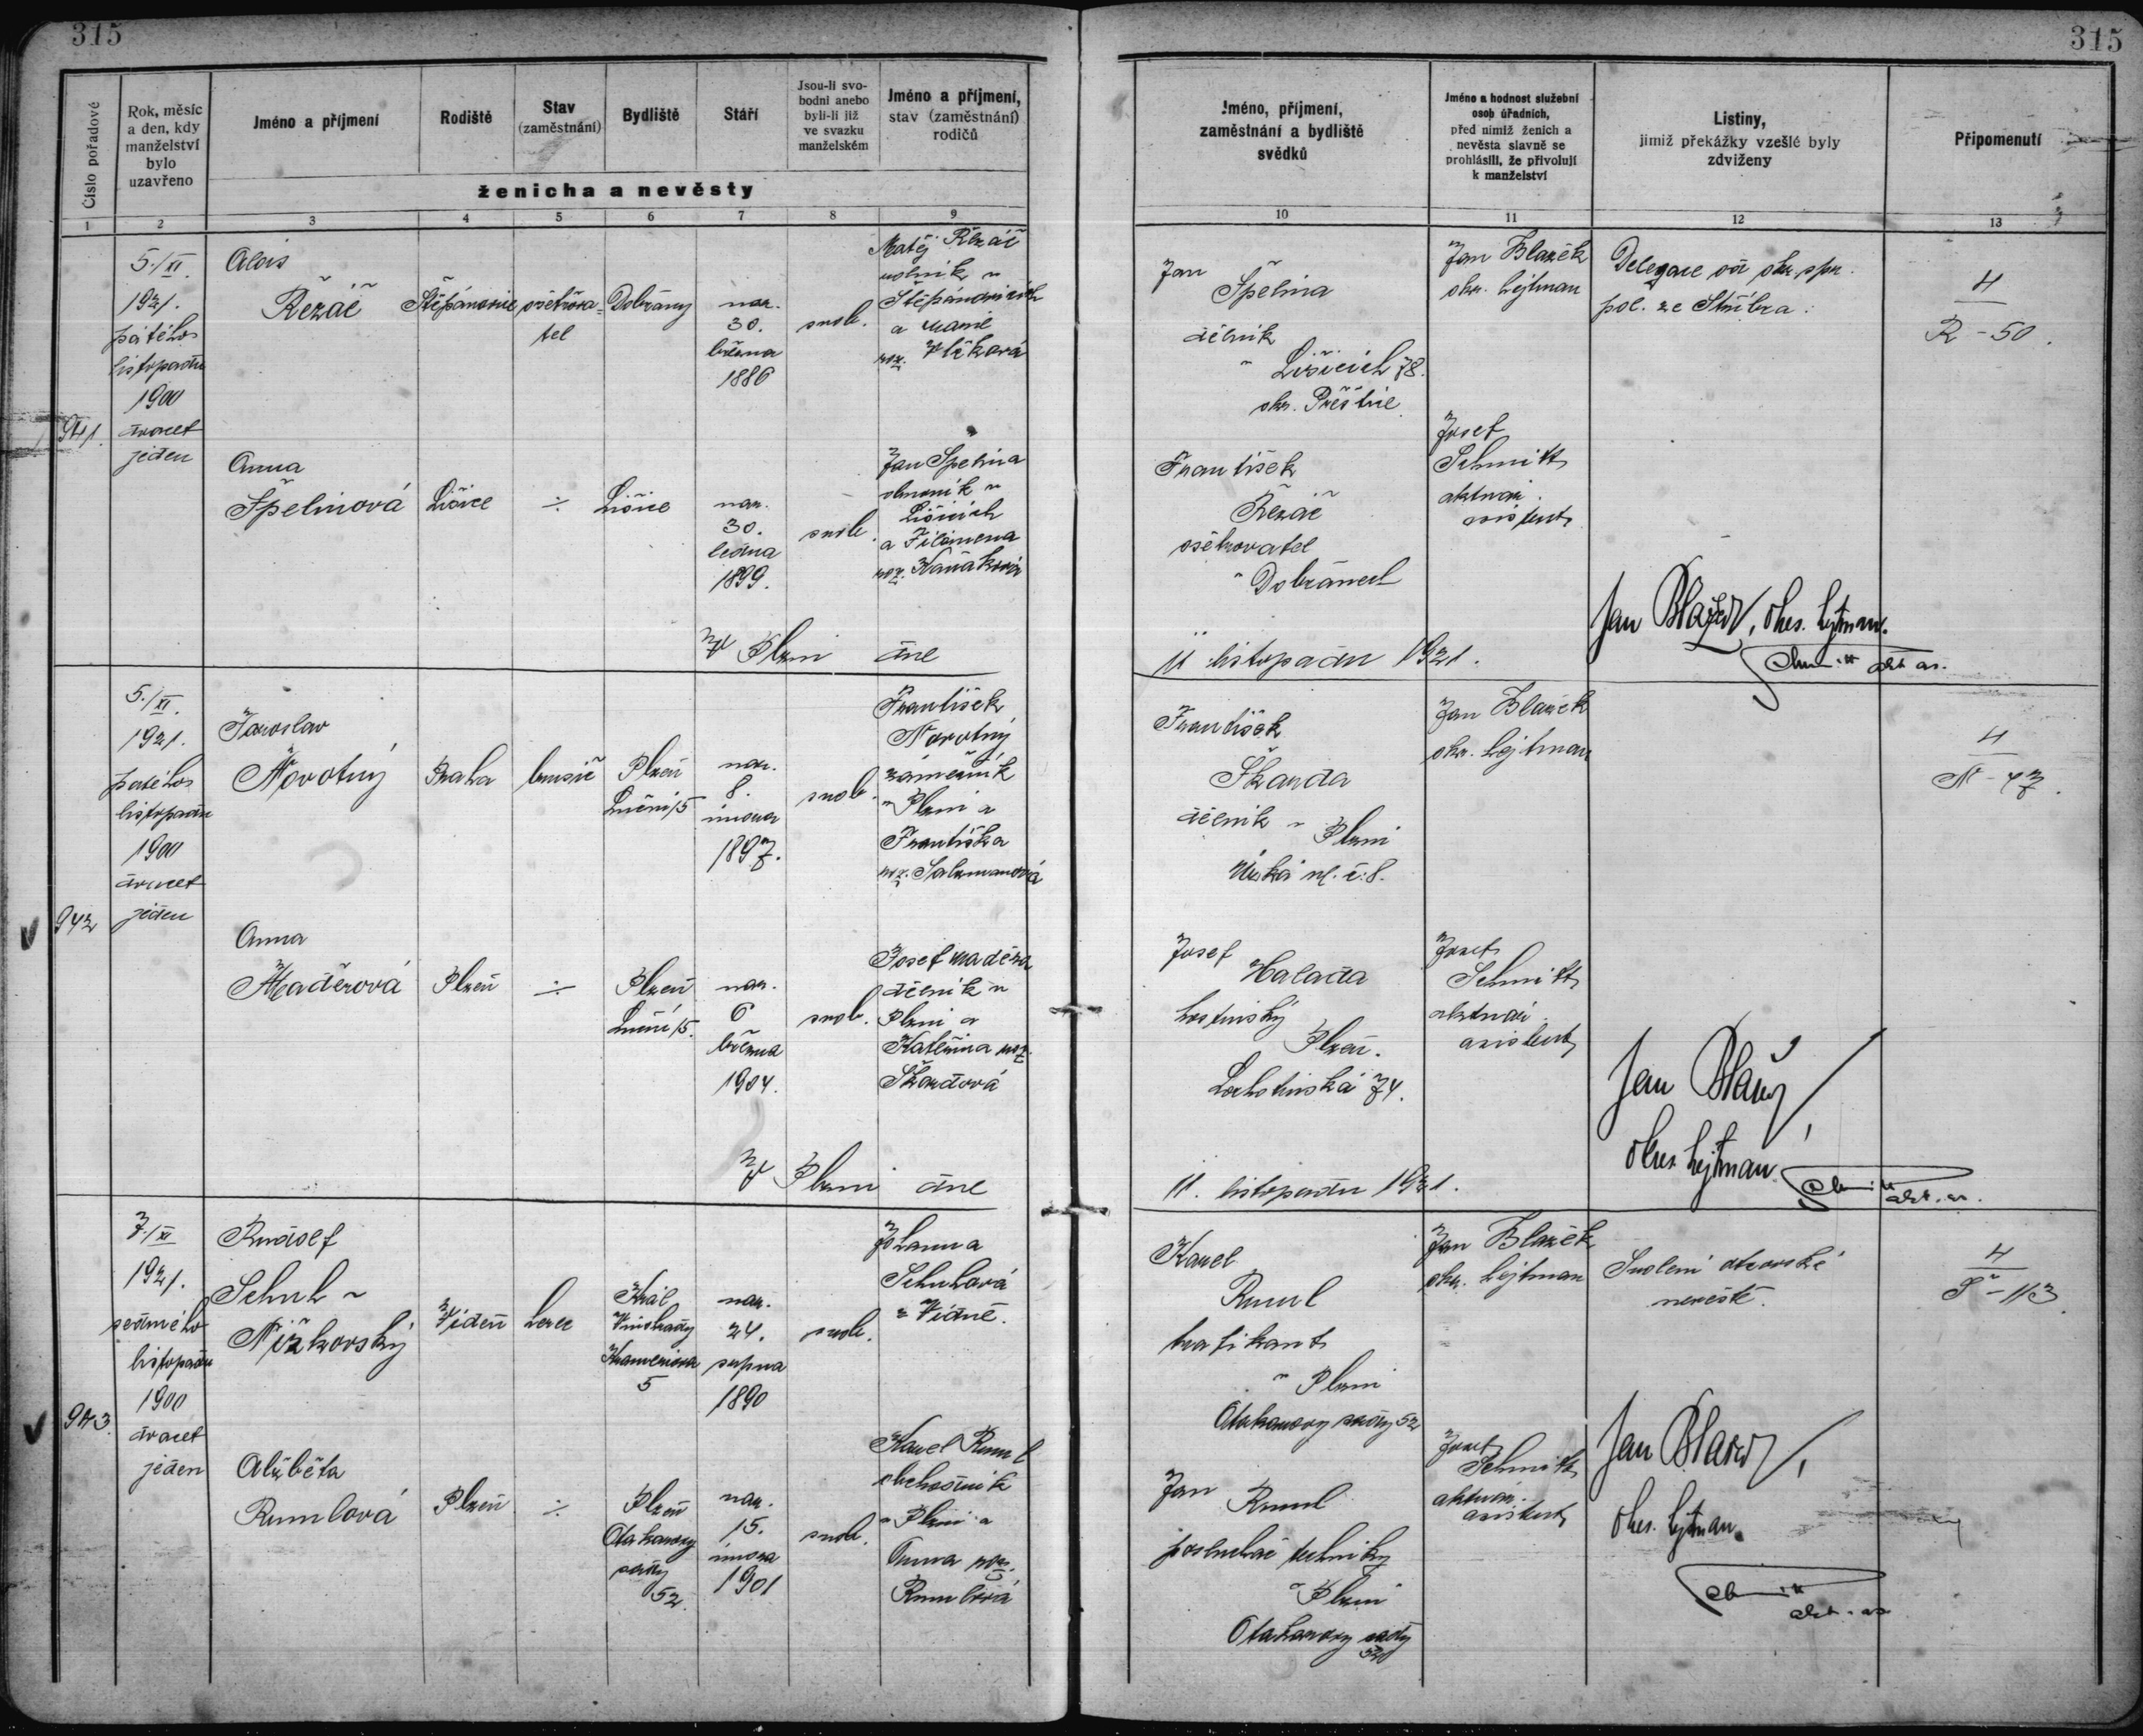 315
315
Číslo pořadové
Rok, měsíc
a den, kdy
manželství
bylo
uzavřeno
Jméno a příjmení
Rodiště
Stav
(zaměstnání)
Bydliště
Stáří
Jsou-li svo-
bodni anebo
byli-li již
ve svazku
manželském
Jméno a příjmení,
stav (zaměstnání)
rodičů
ženicha a nevěsty
Jméno, příjmení,
zaměstnání a bydliště
svědků
Jméno a hodnost služební
osob úřadních,
před nimiž ženich a
nevěsta slavně se
prohlásili, že přivolují
k manželství
Listiny,
jimiž překážky vzešlé byly
zdviženy
Připomenutí
1 2 3 4 5 6 7 8 9 10 11 12 13
941.
5./XI.
1921.
pátého
listopadu
1900
dvacet
jeden
Alois
Řezáč
Štěpánovice
ošetřova-
tel
Dobřany
nar.
30.
března
1886
svob.
Matěj Řezáč
rolník v
Štěpánovicích
a Marie
roz. Vlčková
Jan
Špelina
dělník
v Lišicích 78.
okr. Přeštice
Jan Blažek
okr. hejtman
Delegace od okr. spr.
pol. ze Stříbra.
4
R-50.
Anna
Špelinová
Lišice
÷
Lišice
nar.
30.
ledna
1899.
svob.
Jan Špelina
v
Lišicích
a Filomena
roz. Haňáková
František
Řezáč
ošetřovatel
v Dobřanech
Josef
Schmitt
aktuár.
asistent
V Plzni dne
11 listopadu 1921.
Jan Blažek, okres. hejtman.
Schmitt akt. as.
942
5./XI.
1921.
pátého
listopadu
1900
dvacet
jeden
Jaroslav
Novotný
Praha
brusič
Plzeň
Luční 15
nar.
8.
února
1897.
svob.
František
Novotný
zámečník
v Plzni a
Františka
roz. Salzmanová
František
Škarda
dělník v Plzni
Úzká ul. č. 8.
Jan Blažek
okr. hejtman
4
N-47.
Anna
Maděrová
Plzeň
÷
Plzeň
Luční 15.
nar.
6
března
1904.
svob.
Josef Maděra
dělník v
Plzni a
Kateřina roz.
Škardová
Josef
Halada
hostinský
Plzeň.
Lochotínská 74.
Josef
Schmitt
aktuár.
asistent
V Plzni dne
11. listopadu 1921.
Jan Blažek,
okres. hejtman.
Schmitt akt. as.
943
7./XI
1921.
sedmého
listopadu
1900
dvacet
jeden
Rudolf
Schuh -
Nižkovský
Vídeň
herec
Král.
Vinohrady
Krameriova
5
nar.
24.
srpna
1890
svob.
Johanna
Schuhová
z Vídně.
Karel
Ruml
trafikant
v Plzni
Otakarovy sady 52
Jan Blažek
okr. hejtman
Svolení otcovské
nevěstě.
4
Š-113.
Alžběta
Rumlová
Plzeň
÷
Plzeň
Otakarovy
sady
52.
nar.
15.
února
1901
svob.
Karel Ruml
obchodník
v Plzni a
Anna roz.
Rumlová
Jan
Ruml
posluchač techniky
v Plzni
Otakarovy sady
52
Josef
Schmitt
aktuár.
asistent
Jan Blažek,
okres. hejtman.
Schmitt
akt. as